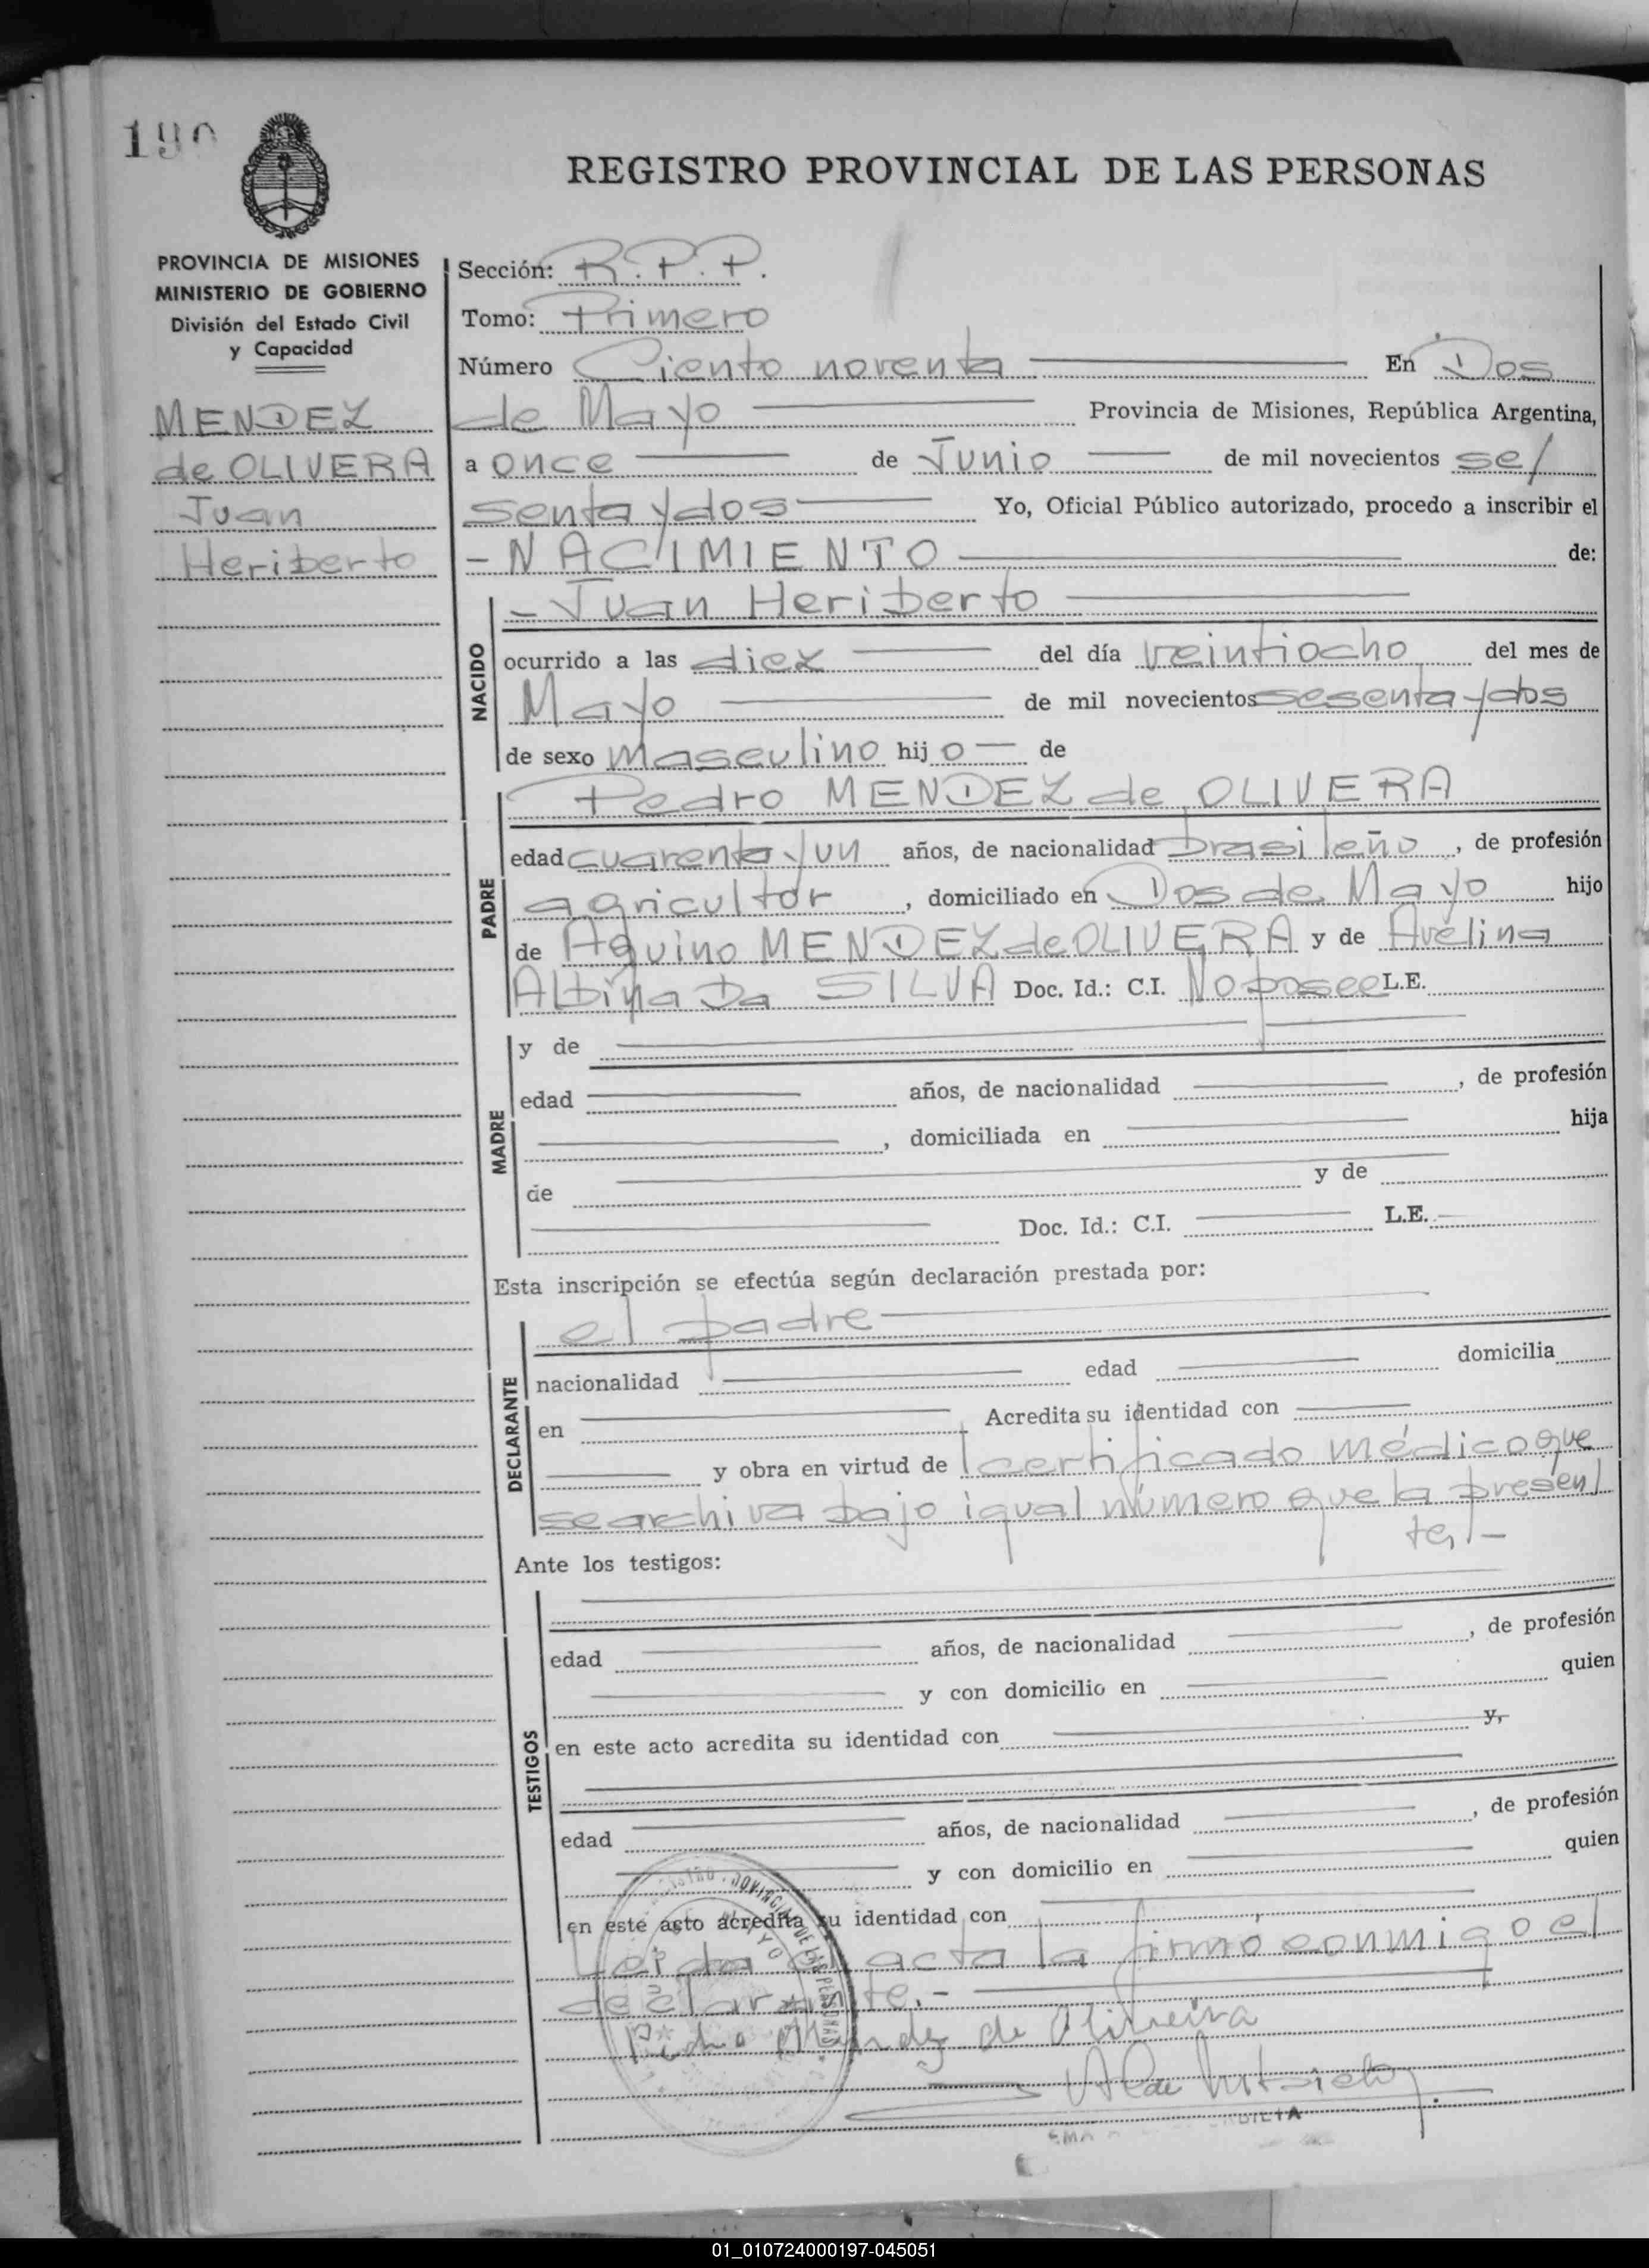 190
REGISTRO PROVINCIAL DE LAS PERSONAS
PROVINCIA DE MISIONES
MINISTERIO DE GOBIERNO
División del Estado Civil
y Capacidad
MENDEZ
de OLIVERA
Juan
Heriberto
Sección: R.P.P.
Tomo: Primero
Número Ciento noventa En Dos
de Mayo Provincia de Misiones, República Argentina,
a once de Junio de mil novecientos se/
senta y dos Yo, Oficial Público autorizado, procedo a inscribir el
- NACIMIENTO de:
NACIDO
- Juan Heriberto
ocurrido a las diez del día veintiocho del mes de
Mayo de mil novecientos sesenta y dos
de sexo masculino hij o de
PADRE
Pedro MENDEZ de OLIVERA
edad cuarenta y un años, de nacionalidad brasileño, de profesión
agricultor, domiciliado en Dos de Mayo hijo
de Aquino MENDEZ de OLIVERA y de Avelina
Albina Da SILVA Doc. Id.: C.I. No posee L.E.
MADRE
y de
edad años, de nacionalidad , de profesión
, domiciliada en hija
de y de
Doc. Id.: C.I. L.E.
Esta inscripción se efectúa según declaración prestada por:
DECLARANTE
el padre
nacionalidad edad domicilia
en Acredita su identidad con
y obra en virtud de certificado médico que
se archiva bajo igual número que la presen/
te/-
Ante los testigos:
TESTIGOS
edad años, de nacionalidad , de profesión
y con domicilio en quien
en este acto acredita su identidad con y,
edad años, de nacionalidad , de profesión
y con domicilio en quien
en este acto acredita su identidad con
Leida el acta la firmó conmigo el
declarante.-
Pedro Mendez de Oliveira
01_010724000197-045051